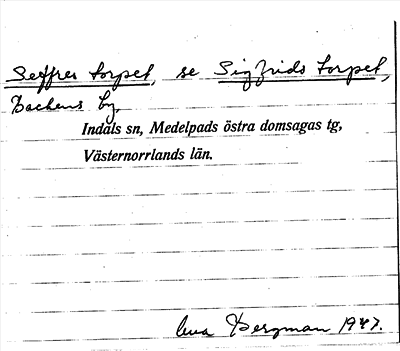 Seffres torpet, se Sigfrids torpet,
Backens by
Indals sn, Medelpads östra domsagas tg,
Västernorrlands län.
Bergman 1947.